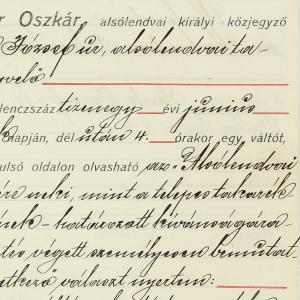 r Oszkár, alsólendvai királyi közjegyző
József úr, alsólendvai ta-
velő
lencszáz tizenegy évi június
napján, dél után 4. órakor egy váltót,
ulsó oldalon olvasható az „Alsólendvai
neki, mint a telepes takarék
nek - határozott kívánságára
tés végett személyesen bemutat-
etkező választ nyertem: